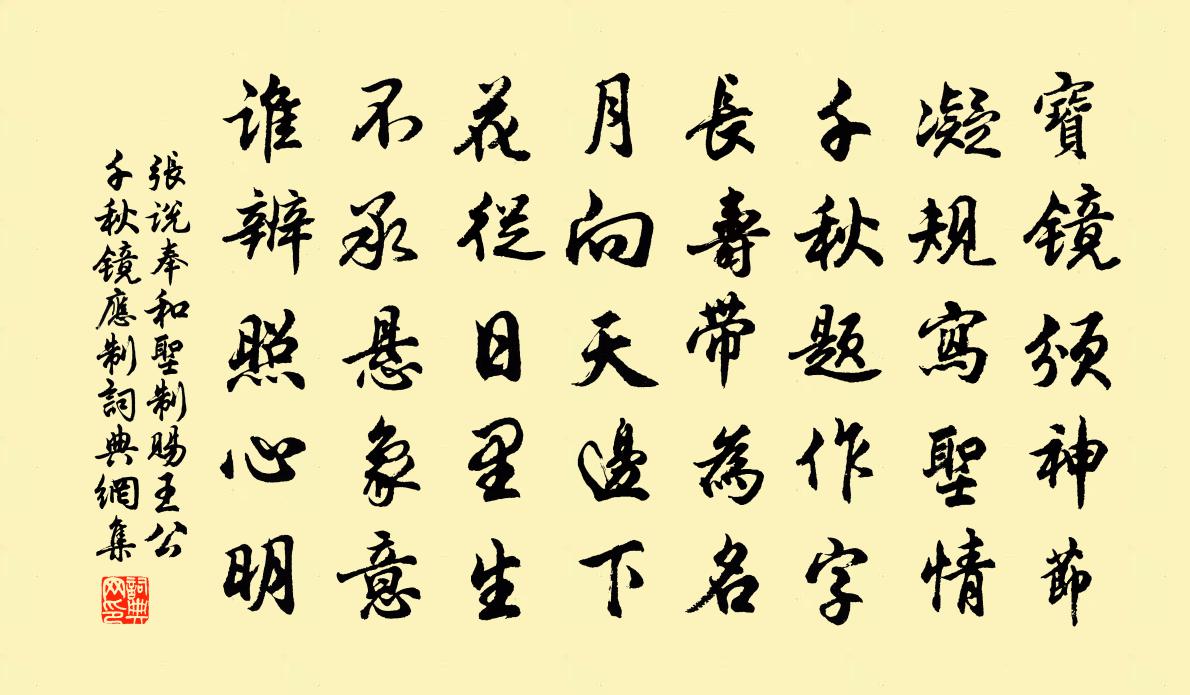 寶镜颁神節
凝规寫聖情
千秋题作字
長壽带為名
月向天邊下
花從日里生
不承悬象意
谁辨照心明
張说奉和聖制赐王公
千秋鏡應制詞典網集
詞典网印